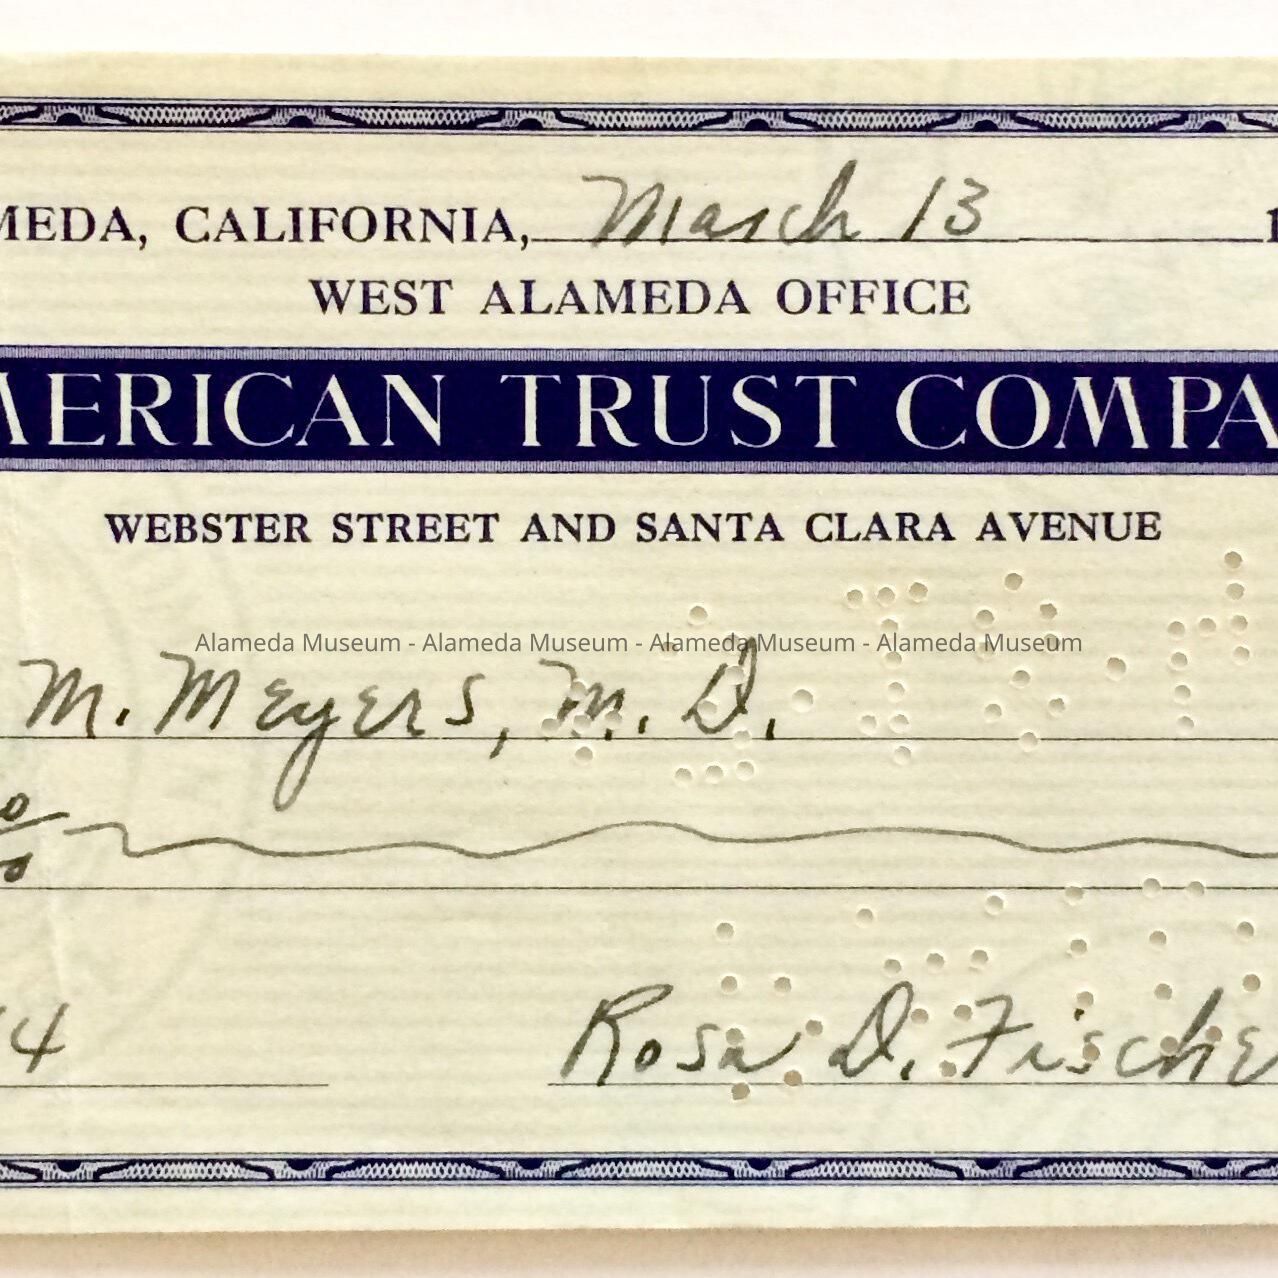 MEDA, CALIFORNIA, March 13 1
WEST ALAMEDA OFFICE
MERICAN TRUST COMPA
WEBSTER STREET AND SANTA CLARA AVENUE
Alameda Museum - Alameda Museum - Alameda Museum - Alameda Museum
M. Meyers, M. D.
4 Rosa D. Fische